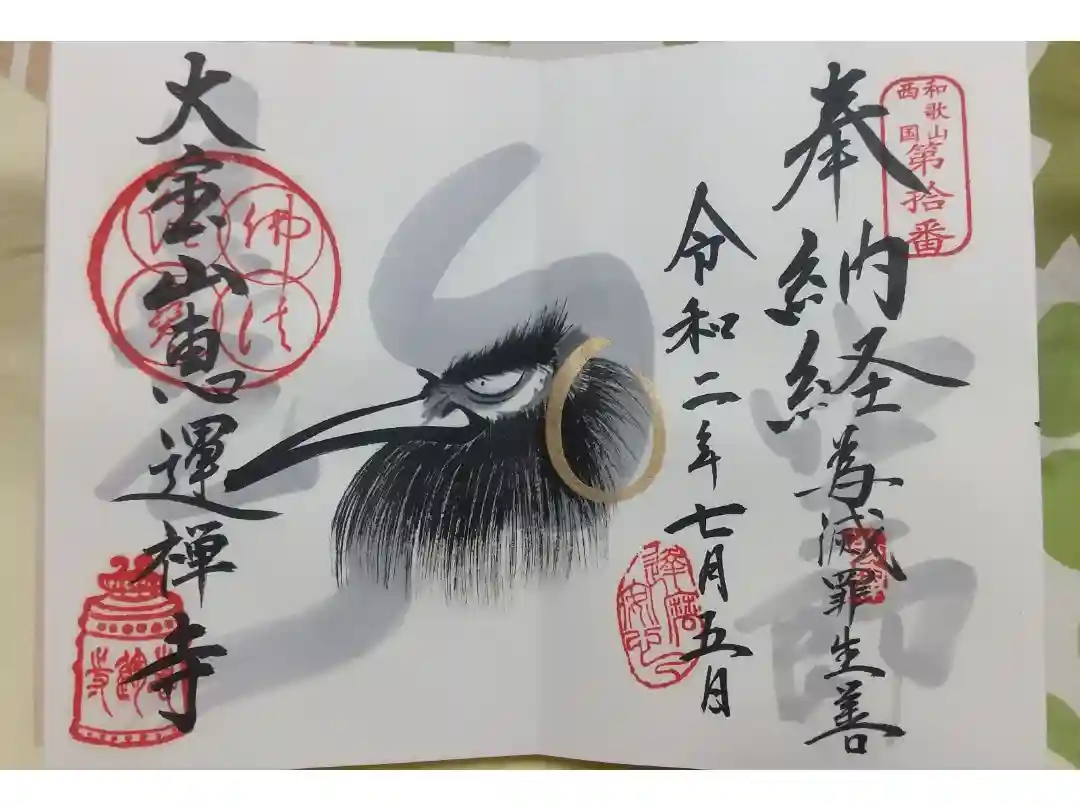 和歌山
西国
第拾番
奉納経為滅罪生善
令和二年七月五日
大宝山恵運禅寺
佛法